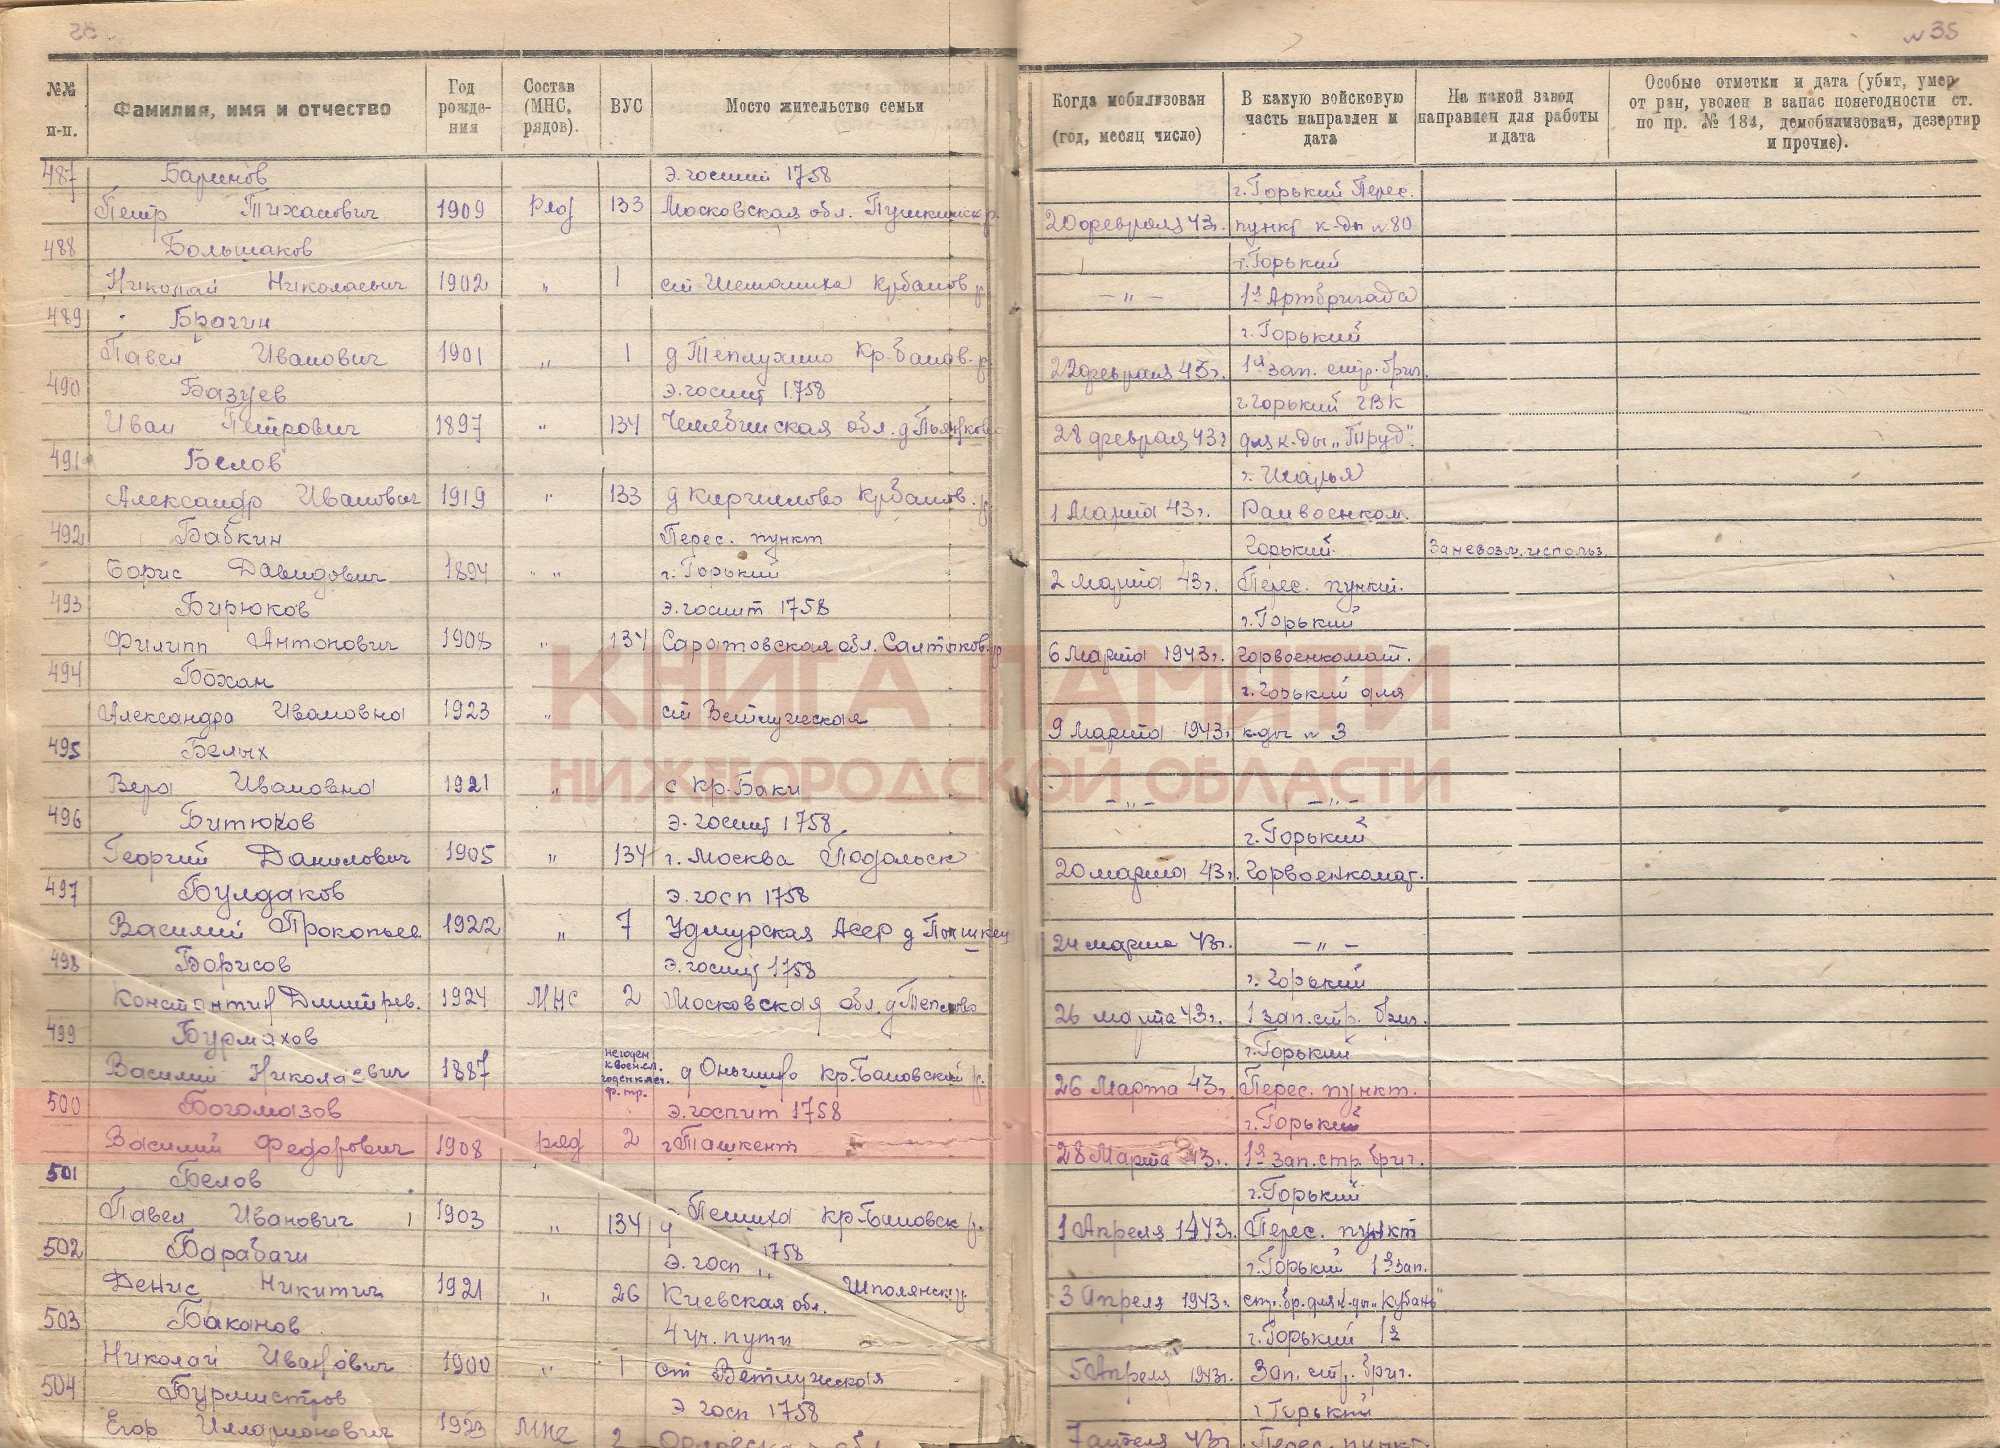 № 35
№№ п-п.
Фамилия, имя и отчество
Год рожде- ния
Состав (МНС, рядов).
ВУС
Мосто жительство семьи
Когда мобилизован (год, месяц число)
В какую войсковую часть направлен и дата
На какой завод направлен для работы и дата
Особые отметки и дата (убит, умер от ран, уволен в запас понегодности ст. по пр. № 184, демобилизован, дезертир и прочие).
487 Баринов э.госпит 1758 г.Горький Перес.
Петр Тиханович 1909 ряд 133 Московская обл. Пушкинск р. 20 февраля 43г. пункт к-ды №80
488 Большаков г.Горький
Николай Николаевич 1902 „ 1 ст Шеманиха Кр баков р. – „ – 1я Артбригада
489 Брагин г.Горький
Павел Иванович 1901 „ 1 д Теплухино Кр-баков. р. 22 февраля 43г. 1я зап. стр. бриг.
490 Базуев э.госпит 1758 г.Горький ГВК
Иван Петрович 1897 „ 134 Челябинская обл. д 28 февраля 43г для к-ды „Труд".
491 Белов г. Шарья
Александр Иванович 1919 „ 133 д Кириллово Кр баков. р. 1 Марта 43г. Райвоенком.
492 Бабкин Перес. пункт Горький За невозм. использ.
Борис Давидович 1894 „ „ г. Горький 2 марта 43г. Перес. пункт.
493 Бирюков э.госпит 1758 г.Горький
Филипп Антонович 1908 „ 134 Саратовская обл. Салтыков. р 6 Марта 1943г. Горвоенкомат.
494 Бохан г.Горький для
Александра Ивановна 1923 „ ст Ветлужская 9 Марта 1943г. к-ды № 3
495 Белых
Вера Ивановна 1921 „ с Кр. Баки – „ – – „ –
496 Битюков э. госпит 1758 г.Горький
Георгий Данилович 1905 „ 134 г. Москва Подольск 20 марта 43г. Горвоенкомат.
497 Булдаков э. госп 1758
Василий Прокопьев 1922 „ 7 Удмурская Асср д 24 марта 43г. – „ –
498 Борисов э.госпит 1758 г.Горький
Константин Дмитрев. 1924 МНС 2 Московская обл. д 26 марта 43г. 1 зап. стр. бриг.
499 Бурмахов г.Горький
Василий Николаевич 1887 негоден к воен.сл. годен к лег. ф. тр. д Кр.Баковский р. 26 Марта 43г. Перес. пункт.
500 Богомазов э.госпит 1758 г.Горький
Василий Федорович 1908 ряд 2 г Ташкент 28 Марта 43г. 1я зап. стр. бриг.
501 Белов г.Горький
Павел Иванович 1903 „ 134 д Пешиха кр.Баковск р. 1 Апреля 1943г. Перес. пункт
502 Барабаш э. госп 1758 г.Горький 1я зап.
Денис Никитич 1921 „ 26 Киевская обл. Шполянск р. 3 Апреля 1943г. стр. бр. для к-ды „Кубань"
503 Баканов 4 уч. пути г.Горький 1я
Николай Иванович 1900 „ 1 ст Ветлужская 5 Апреля 1943г. Зап. стр. бриг.
504 Бурмистров э госп 1758 г Горький
Егор Илларионович 1923 МНС 2 Орловская обл 7 апреля 43г. Перес. пункт.
КНИГА ПАМЯТИ
НИЖЕГОРОДСКОЙ ОБЛАСТИ